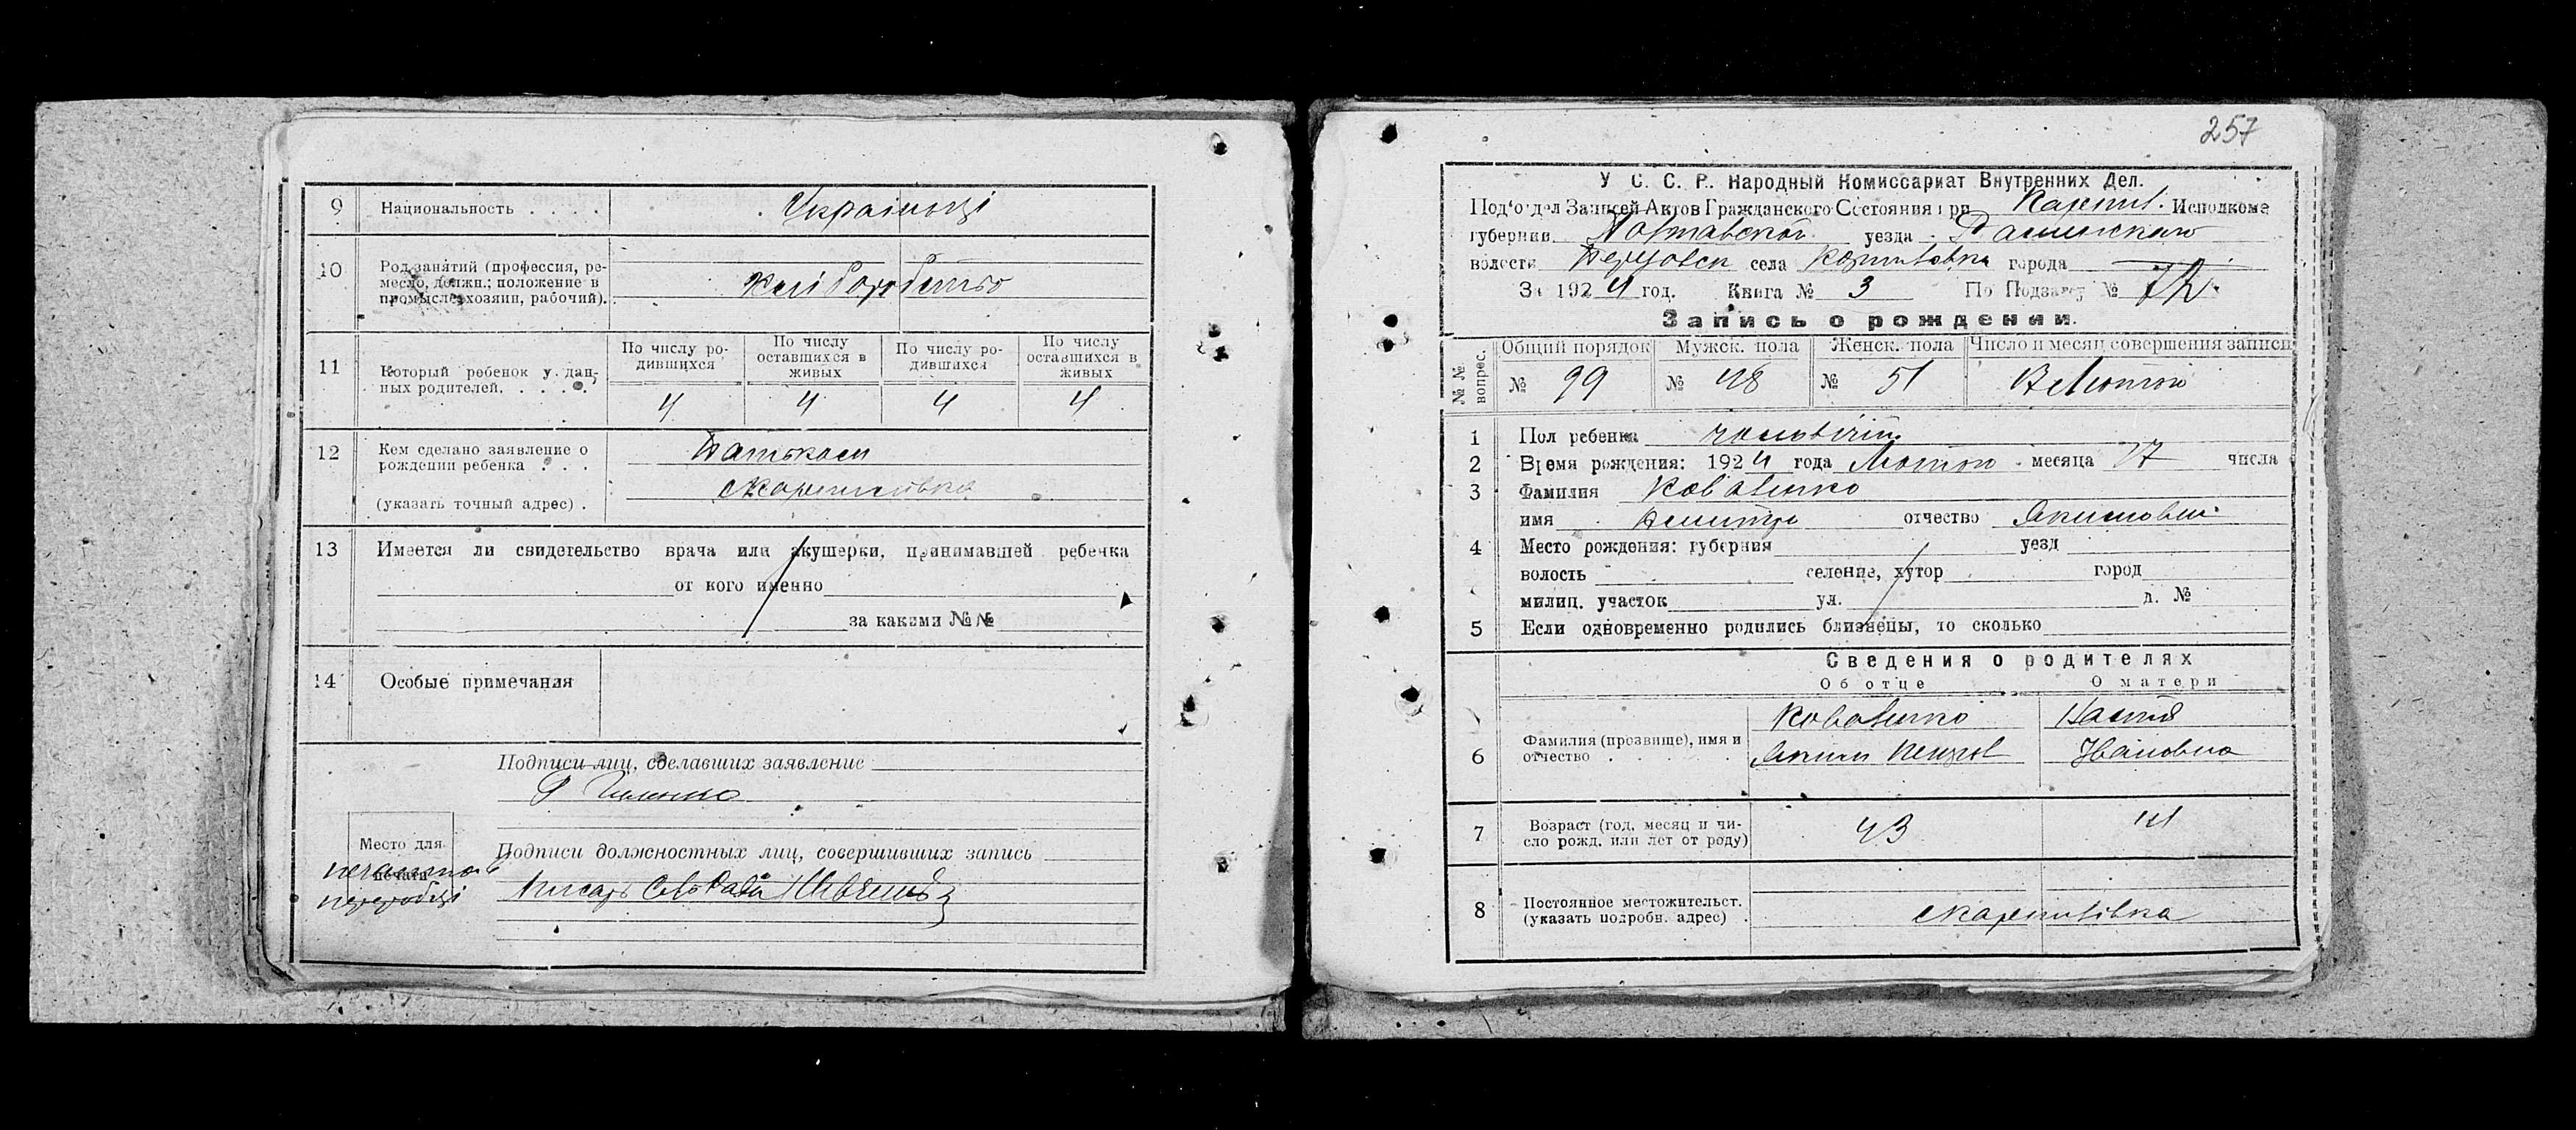 9 Национальность . . . . Українці
10 Род занятий (профессия, ре-
месло, должн.; положение в
промысле: хозяин, рабочий).
11 Который ребенок у дан-
ных родителей. . . . .
По числу ро-
дившихся
По числу
оставшихся в
живых
По числу ро-
дившихся
По числу
оставшихся в
живых
4 4 4 4
12 Кем сделано заявление о
рождении ребенка . . .
Батьком
(указать точный адрес) .
13 Имеется ли свидетельство врача или акушерки, принимавшей ребенка
от кого именно
за какими №№
14 Особые примечания
Подписи лиц, сделавших заявление
Место для
печати
Подписи должностных лиц, совершивших запись
Писарь
257
У. С. С. Р. Народный Комиссариат Внутренних Дел.
Под'отдел Записей Актов Гражданского Состояния при Исполкоме
губернии Полтавской уезда
волости села города
За 1924 год. Книга № 3 По Подзагу №
Запись о рождении.
№№ вопрос.
Общий порядок Мужск. пола Женск. пола Число и месяц совершения записи
№ 99 № 48 № 51
1 Пол ребенка чоловічій
2 Время рождения: 1924 года Лютого месяца 17 числа
3 Фамилия Коваленко
имя отчество Якимович
4 Место рождения: губерния уезд
волость селение, хутор город
милиц. участок ул. д. №
5 Если одновременно родились близнецы, то сколько
Сведения о родителях
Об отце О матери
6 Фамилия (прозвище), имя и
отчество . . . . . .
Коваленко
Яким
Настя
Івановна
7 Возраст (год, месяц и чи-
сло рожд. или лет от роду)
43 41
8 Постоянное местожительст.
(указать подробн. адрес) .